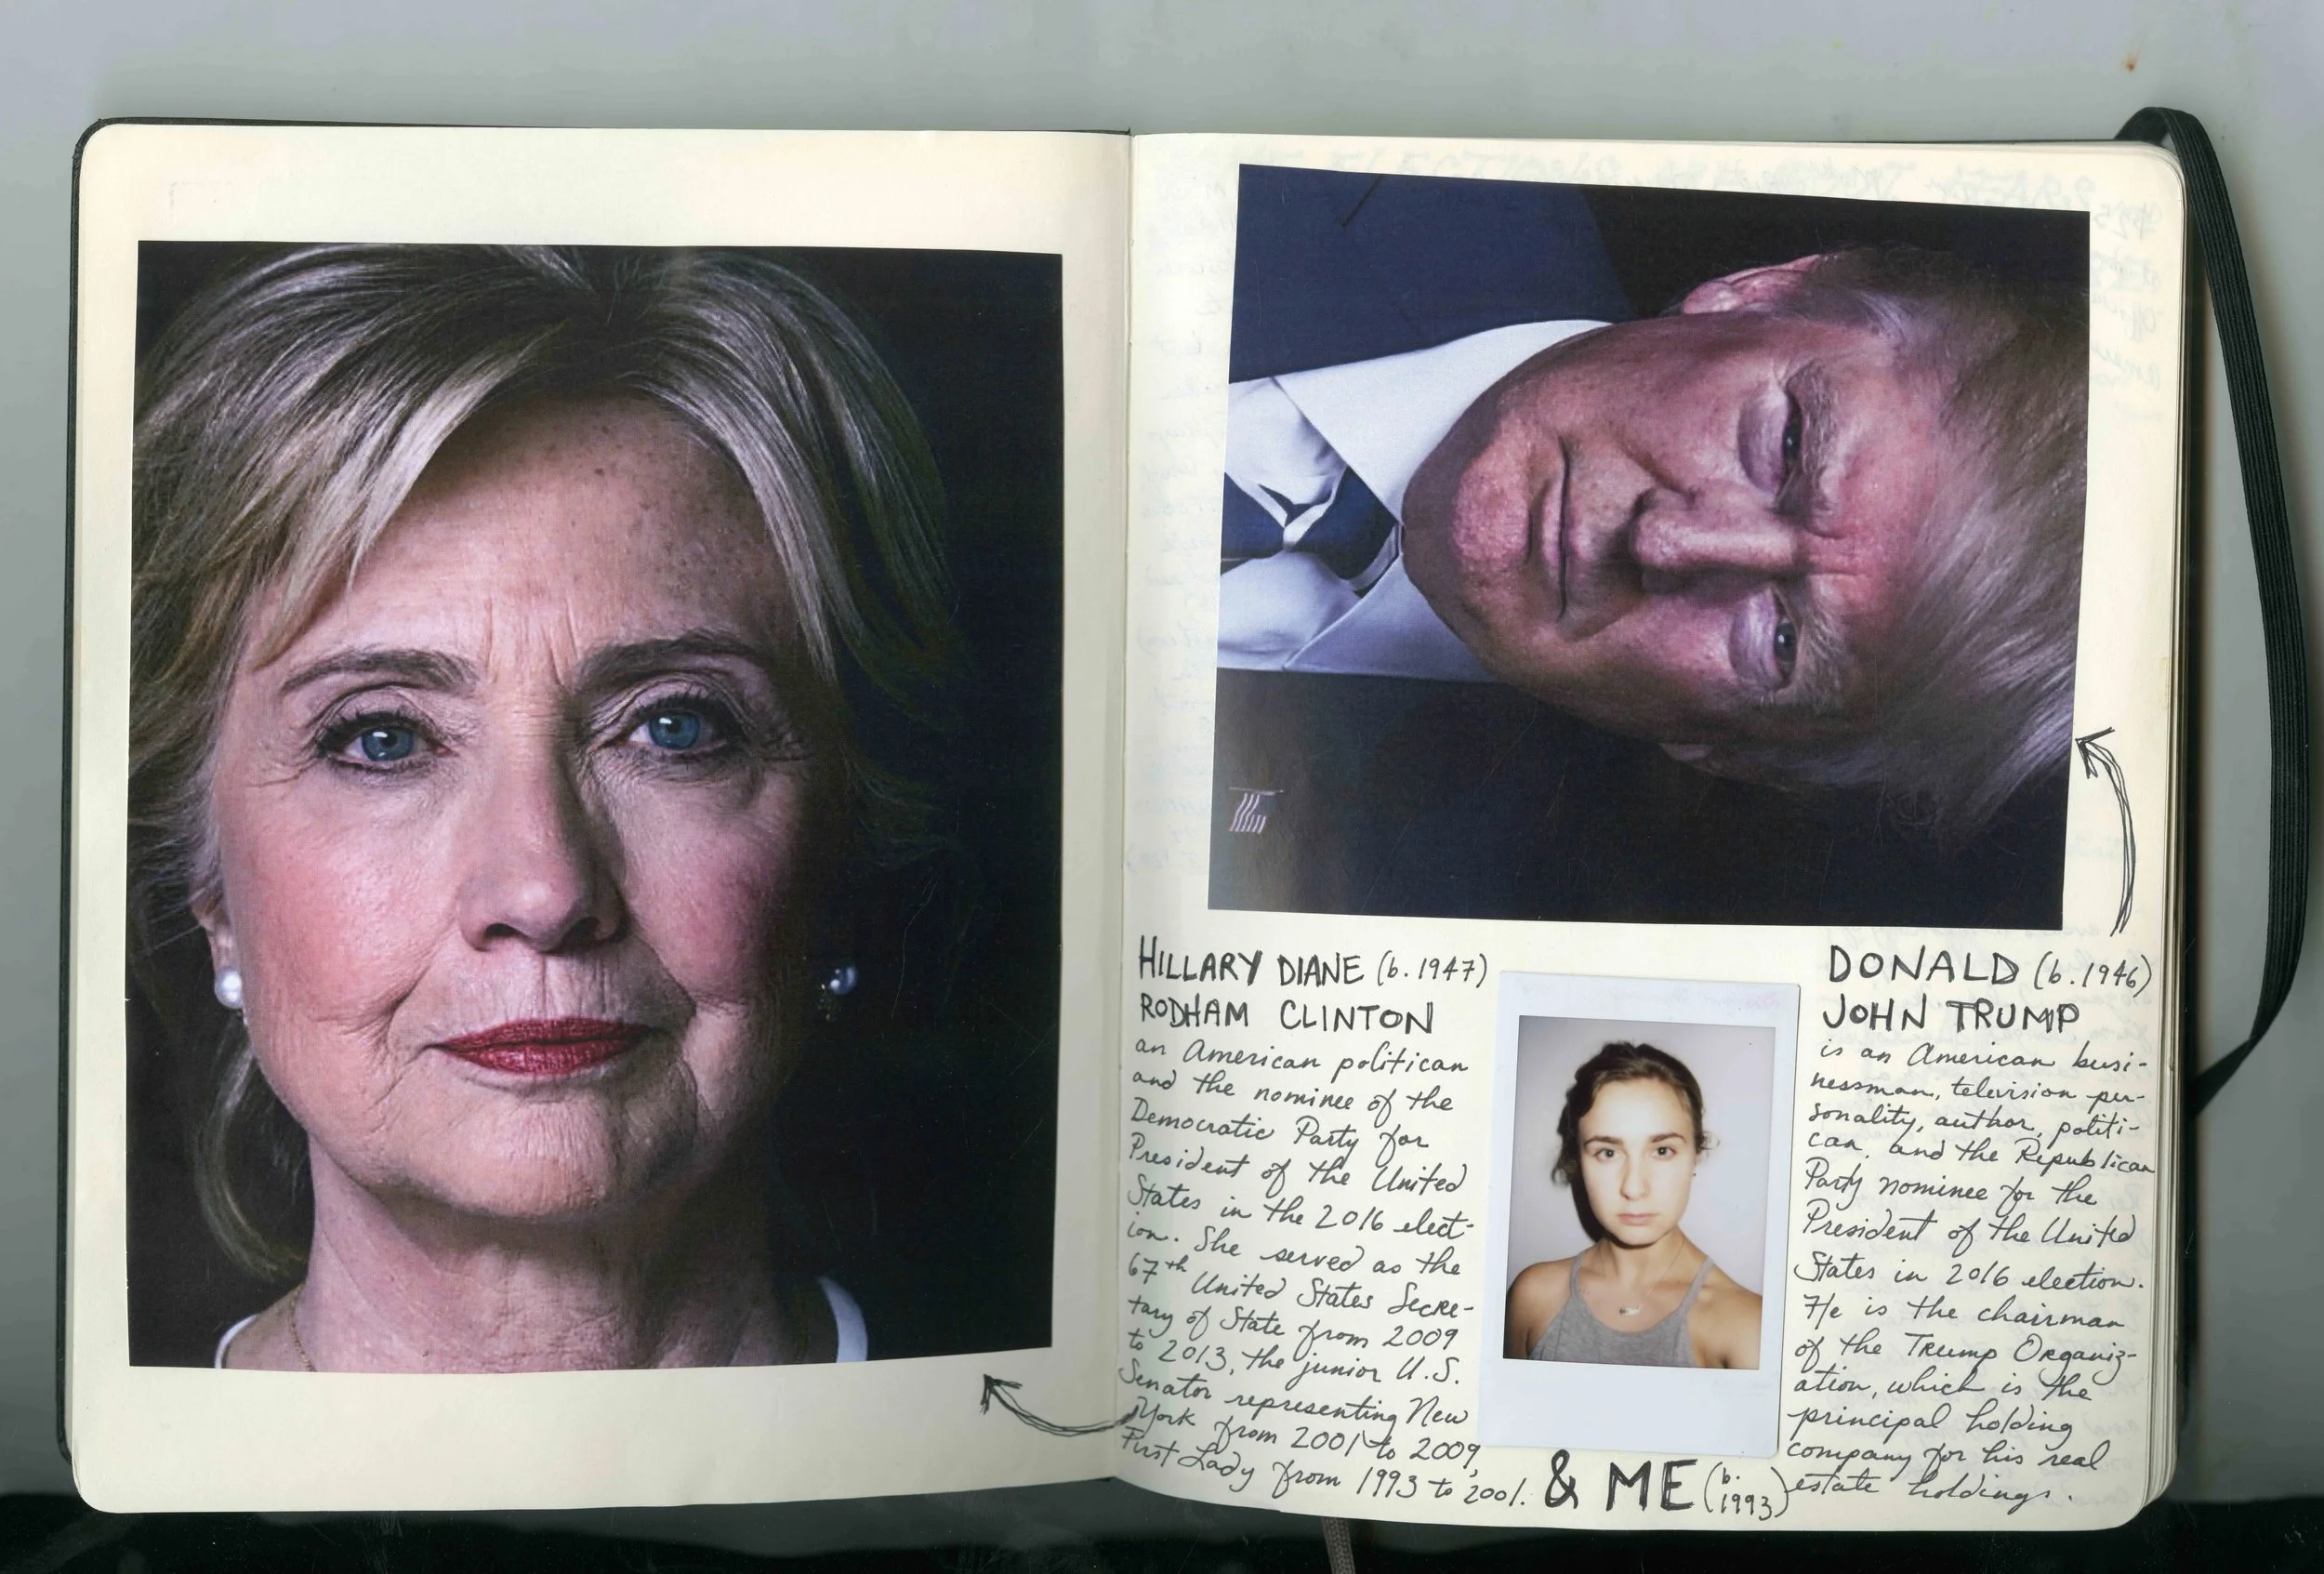 HILLARY DIANE (b. 1947)
RODHAM CLINTON
an American politican
and the nominee of the
Democratic Party for
President of the United
States in the 2016 elect-
ion. She served as the
67th United States Secre-
tary of State from 2009
to 2013, the junior U.S.
Senator representing New
York from 2001 to 2009,
First Lady from 1993 to 2001.
& ME (b. 1993)
DONALD (b. 1946)
JOHN TRUMP
is an American busi-
nessman, television per-
sonality, author, politi-
can, and the Republican
Party nominee for the
President of the United
States in 2016 election.
He is the chairman
of the Trump Organiz-
ation, which is the
principal holding
company for his real
estate holdings.